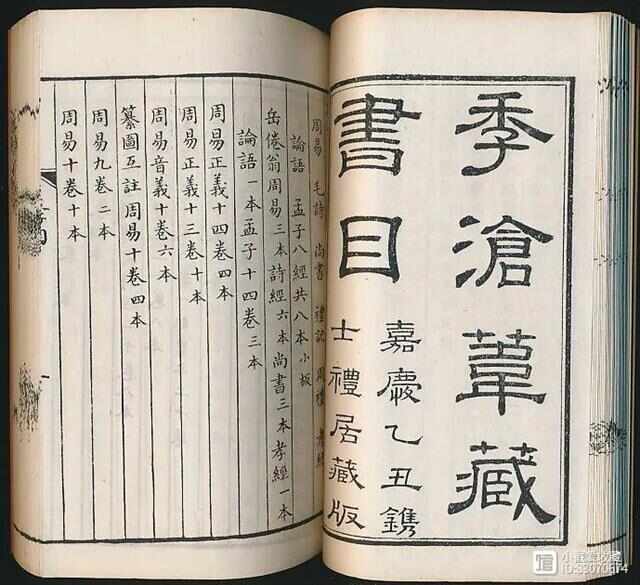 季滄葦藏
書目
嘉慶乙丑鐫
士禮居藏版
周易 毛詩 尚書 禮記 周禮
論語 孟子八經共八本小板
岳倦翁周易三本詩經六本尚書三本孝經一本
論語一本孟子十四卷三本
周易正義十四卷四本
周易正義十三卷十本
周易音義十卷六本
纂圖互註周易十卷四本
周易九卷二本
周易十卷十本